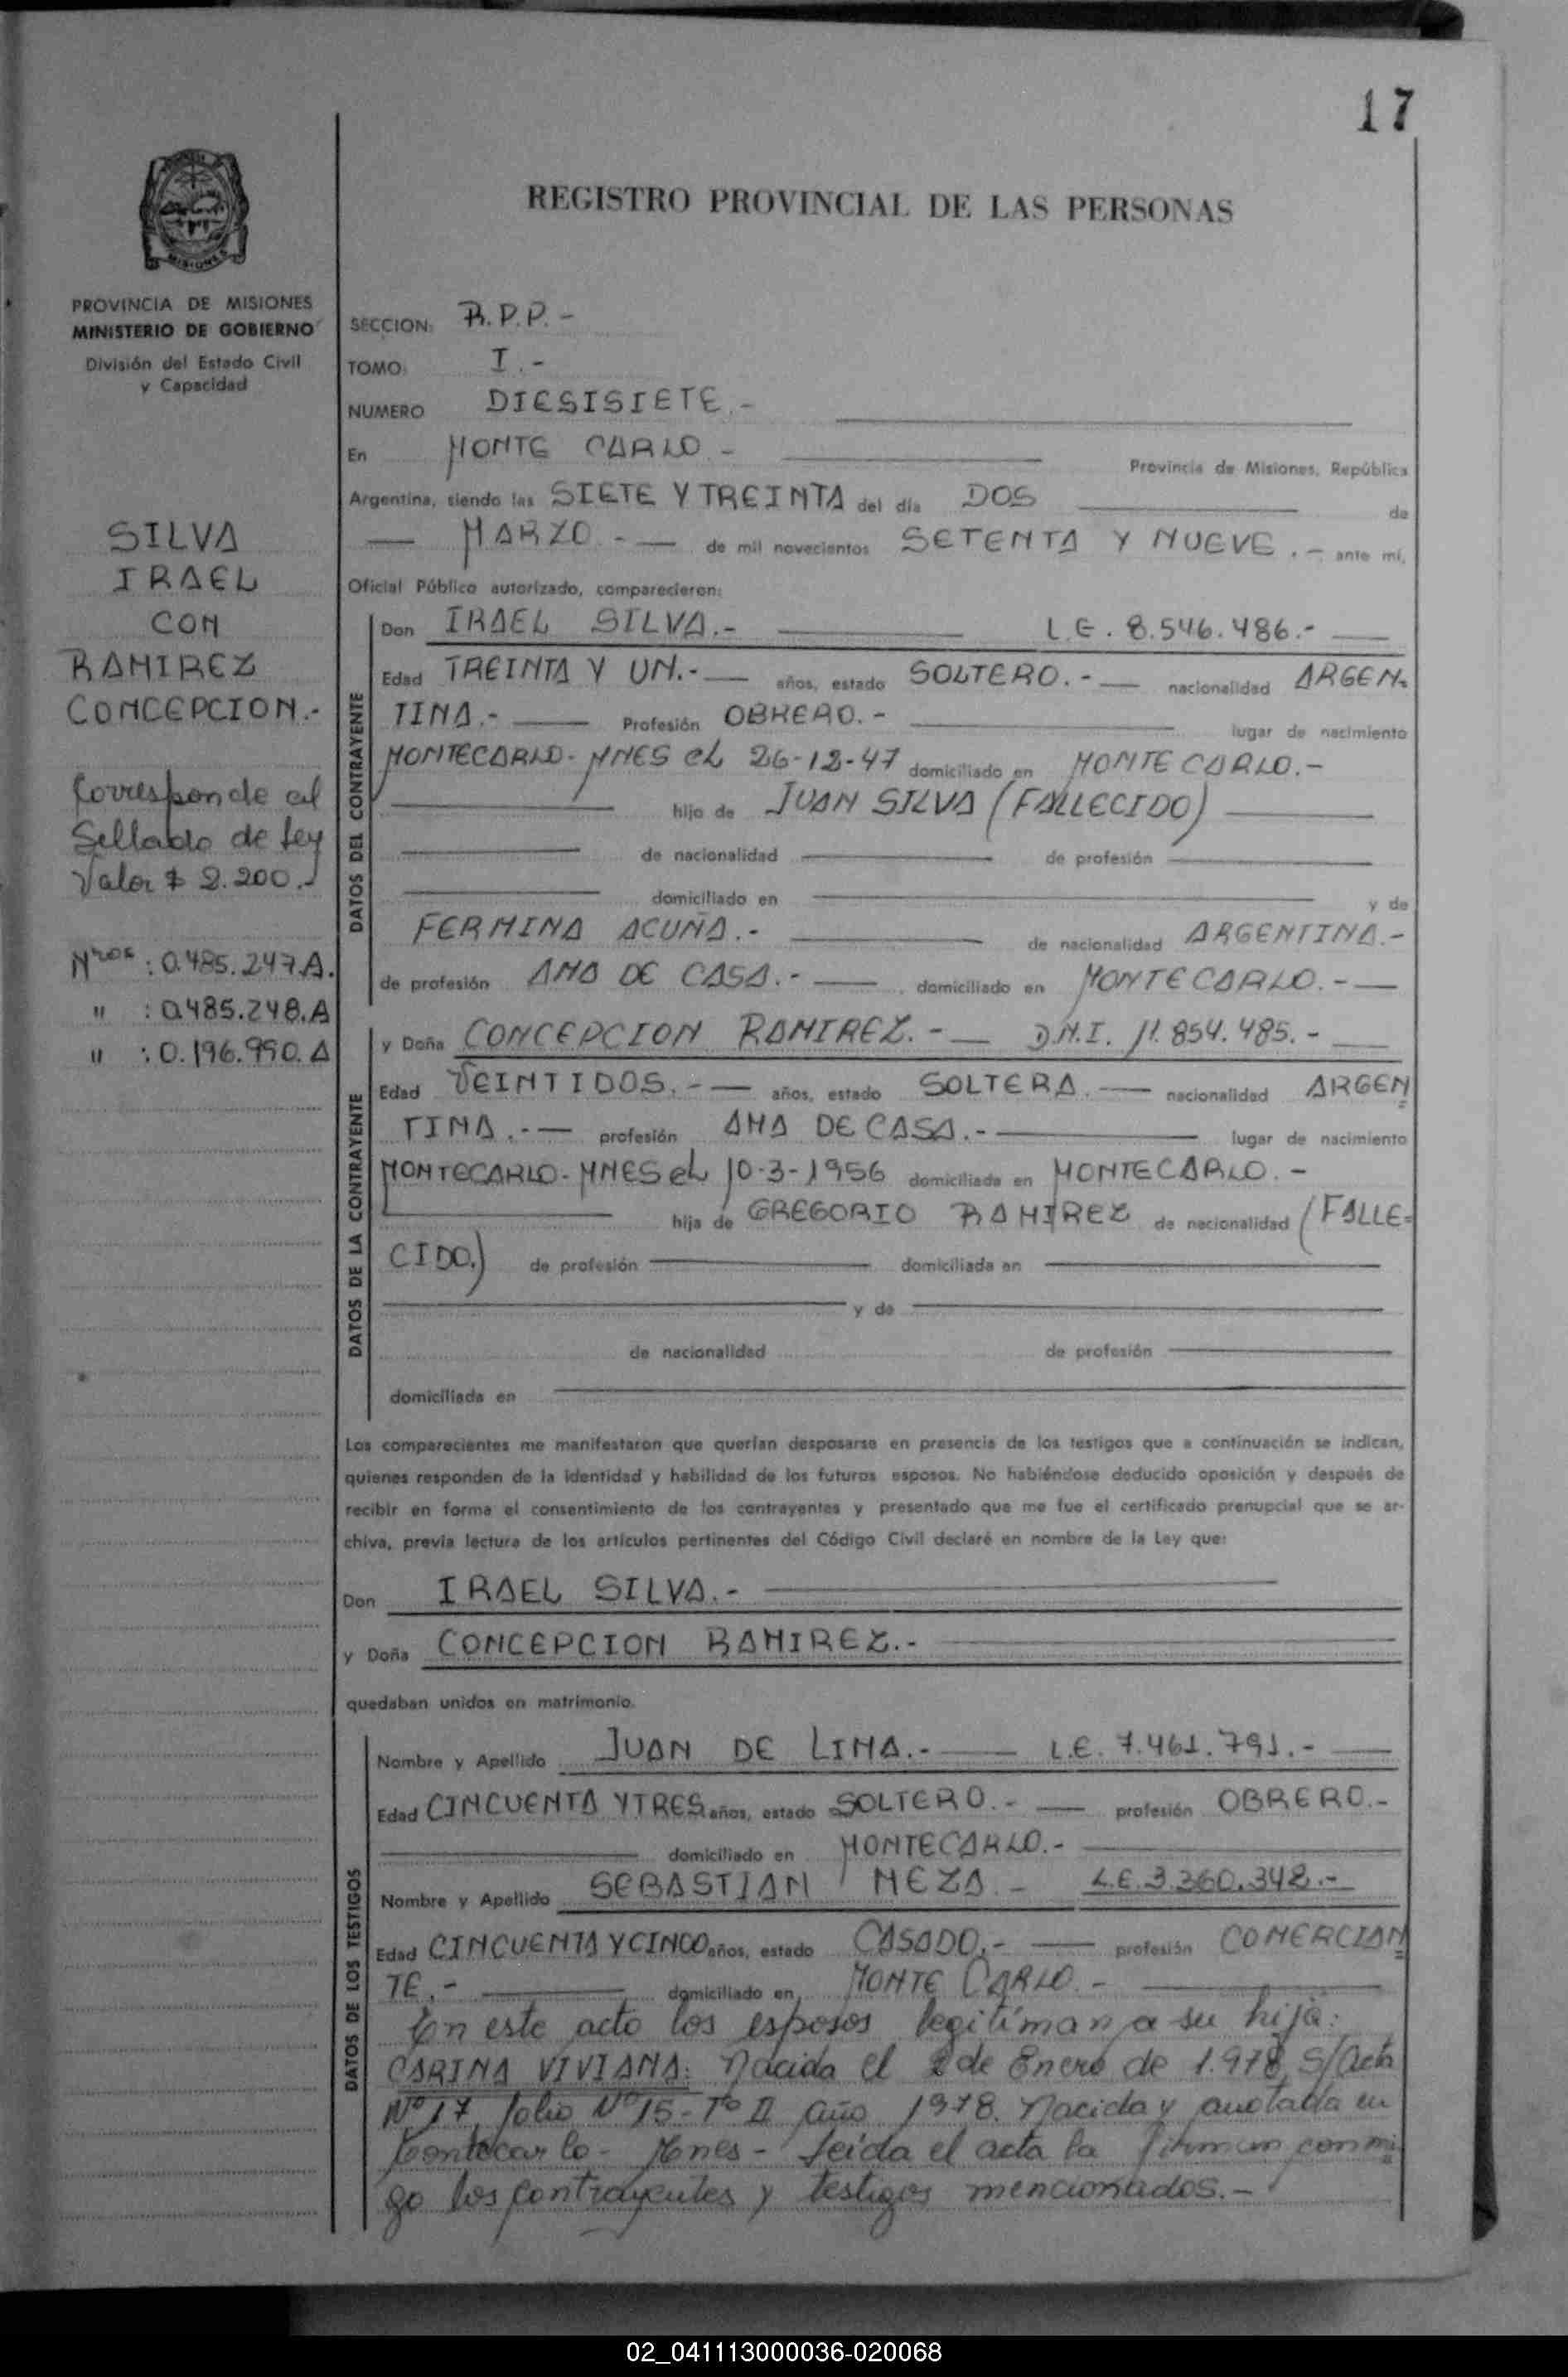 17
REGISTRO PROVINCIAL DE LAS PERSONAS
MISIONES
PROVINCIA DE MISIONES
MINISTERIO DE GOBIERNO
División del Estado Civil
y Capacidad
SILVA
IRAEL
CON
RAMIREZ
CONCEPCION.-
Corresponde al
Sellado de Ley
Valor $ 2.200.-
Nros : 0.485.247.A.
" : 0.485.248.A
" : 0.196.990.A
SECCION: R.P.P.-
TOMO: I.-
NUMERO DIESISIETE.-
En MONTE CARLO.- Provincia de Misiones, República
Argentina, siendo las SIETE Y TREINTA del día DOS de
MARZO.- de mil novecientos SETENTA Y NUEVE.- ante mí,
Oficial Público autorizado, comparecieron:
DATOS DEL CONTRAYENTE
Don IRAEL SILVA.- L.E. 8.546.486.-
Edad TREINTA Y UN.- años, estado SOLTERO.- nacionalidad ARGEN-
TINA.- Profesión OBRERO.- lugar de nacimiento
MONTECARLO- MNES el 26-12-47 domiciliado en MONTECARLO.-
hijo de JUAN SILVA (FALLECIDO)
de nacionalidad de profesión
domiciliado en y de
FERMINA ACUÑA.- de nacionalidad ARGENTINA.-
de profesión AMA DE CASA.- domiciliado en MONTECARLO.-
DATOS DE LA CONTRAYENTE
y Doña CONCEPCION RAMIREZ.- D.N.I. 11.854.485.-
Edad VEINTIDOS.- años, estado SOLTERA.- nacionalidad ARGEN=
TINA.- profesión AMA DE CASA.- lugar de nacimiento
MONTECARLO- MNES el 10-3-1956 domiciliada en MONTECARLO.-
hija de GREGORIO RAMIREZ de nacionalidad (FALLE=
CIDO.) de profesión domiciliada en
y de
de nacionalidad de profesión
domiciliada en
Los comparecientes me manifestaron que querían desposarse en presencia de los testigos que a continuación se indican,
quienes responden de la identidad y habilidad de los futuros esposos. No habiéndose deducido oposición y después de
recibir en forma el consentimiento de los contrayentes y presentado que me fue el certificado prenupcial que se ar-
chiva, previa lectura de los artículos pertinentes del Código Civil declaré en nombre de la Ley que:
Don IRAEL SILVA.-
y Doña CONCEPCION RAMIREZ.-
quedaban unidos en matrimonio.
DATOS DE LOS TESTIGOS
Nombre y Apellido JUAN DE LIMA.- L.E. 7.461.791.-
Edad CINCUENTA Y TRES años, estado SOLTERO.- profesión OBRERO.-
domiciliado en MONTECARLO.-
Nombre y Apellido SEBASTIAN MEZA.- L.E. 3.360.342.-
Edad CINCUENTA Y CINCO años, estado CASADO.- profesión COMERCIAN=
TE.- domiciliado en MONTE CARLO.-
En este acto los esposos legitiman a su hija:
CARINA VIVIANA: Nacida el 2 de Enero de 1.978, S/Acta
Nº 17, folio Nº 15- Tº II año 1978. Nacida y anotada en
Montecarlo- Mnes- Leida el acta la firman conmi=
go los contrayentes y testigos mencionados.-
02_041113000036-020068